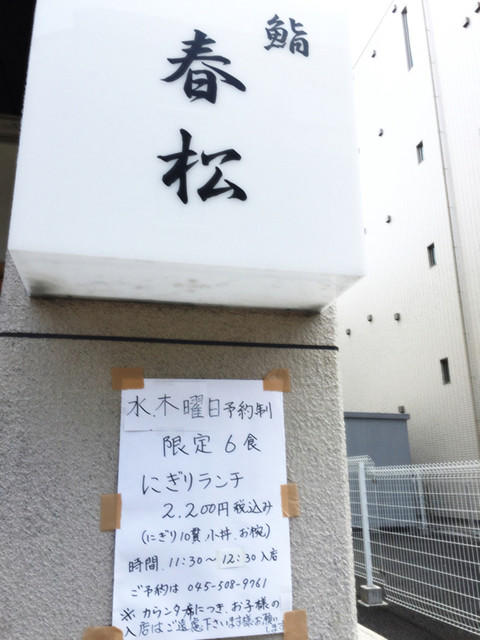 鮨
春松
水、木曜日予約制
限定6食
にぎりランチ
2,200円税込み
(にぎり10貫、小丼、お椀)
時間 11:30〜12:30入店
ご予約は 045-508-9761
※カウンタ席につき、お子様の
入店はご遠慮下さいます様お願い
します